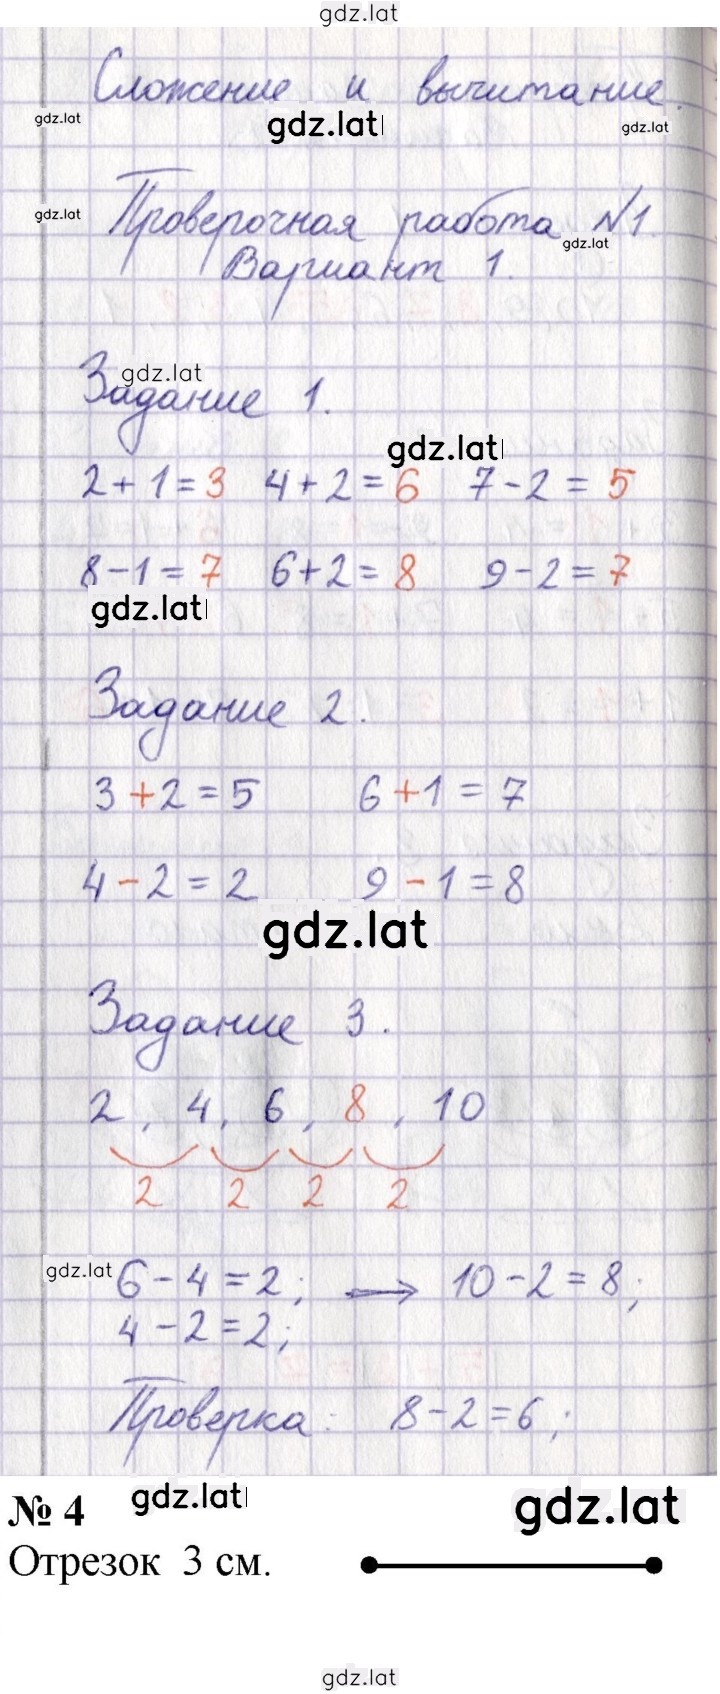 gdz.lat
Сложение и вычитание.
gdz.lat gdz.lat gdz.lat
Проверочная работа №1.
gdz.lat gdz.lat
Вариант 1.
gdz.lat
Задание 1.
gdz.lat
2+1=3 4+2=6 7-2=5
8-1=7 6+2=8 9-2=7
gdz.lat
Задание 2.
3+2=5 6+1=7
4-2=2 9-1=8
gdz.lat
Задание 3.
2, 4, 6, 8, 10
2 2 2 2
gdz.lat 6-4=2; ⟶ 10-2=8;
4-2=2;
Проверка: 8-2=6;
gdz.lat gdz.lat
№ 4
Отрезок 3 см.
gdz.lat